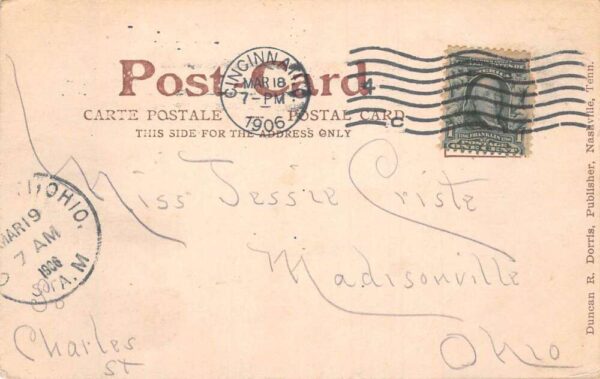 Post Card
CINCINNATI, O.
MAR 18
7-PM
1906
4
C
CARTE POSTALE POSTAL CARD
THIS SIDE FOR THE ADDRESS ONLY
Miss Jessie Criste
Madisonville
Ohio
Charles
St
OHIO,
MAR 19
7 AM
1906
A.M
Duncan R. Dorris, Publisher, Nashville, Tenn.